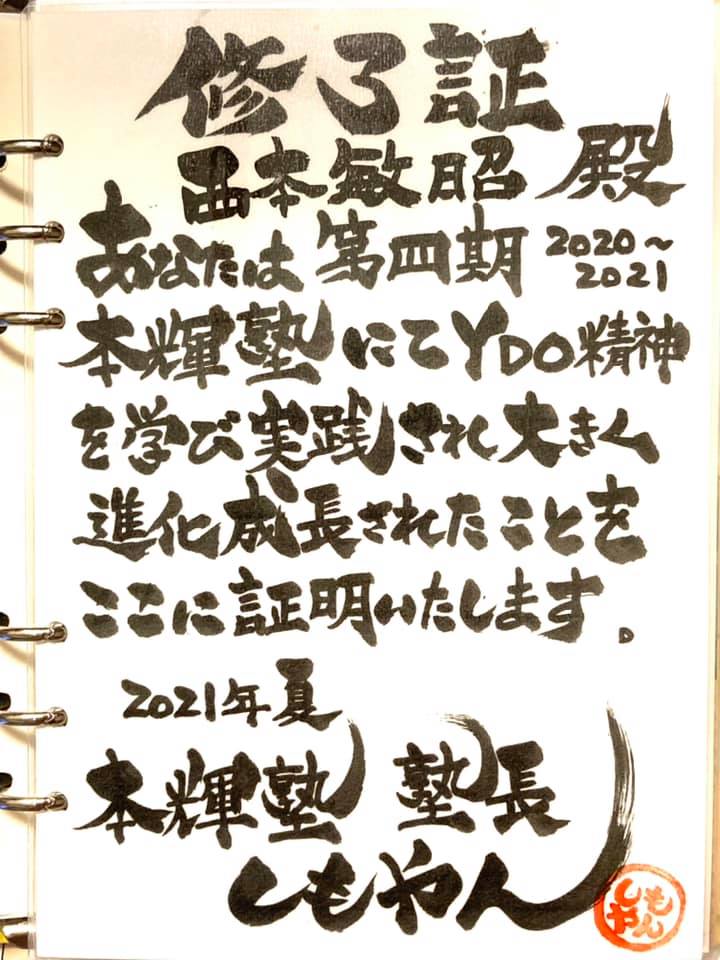 修了証
西本敏昭 殿
あなたは 第四期 2020～
2021
本輝塾にてYDO精神
を学び実践され大きく
進化成長されたことを
ここに証明いたします。
2021年夏
本輝塾 塾長
しもやん
しもやん